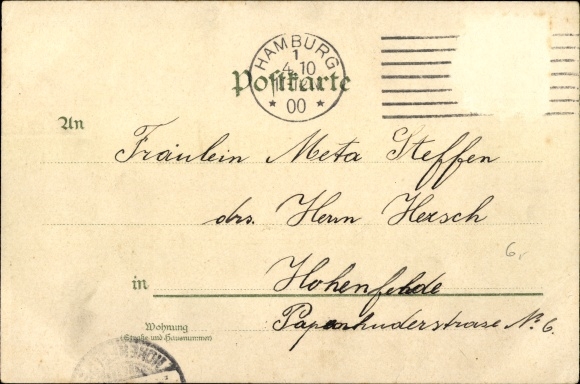 HAMBURG
1
4.10
00
Postkarte
An
Fräulein Meta Steffen
drs. Herrn Hersch
6,-
in Hohenfelde
Wohnung
(Straße und Hausnummer)
Papenhuderstrase No 6.
HOHEN